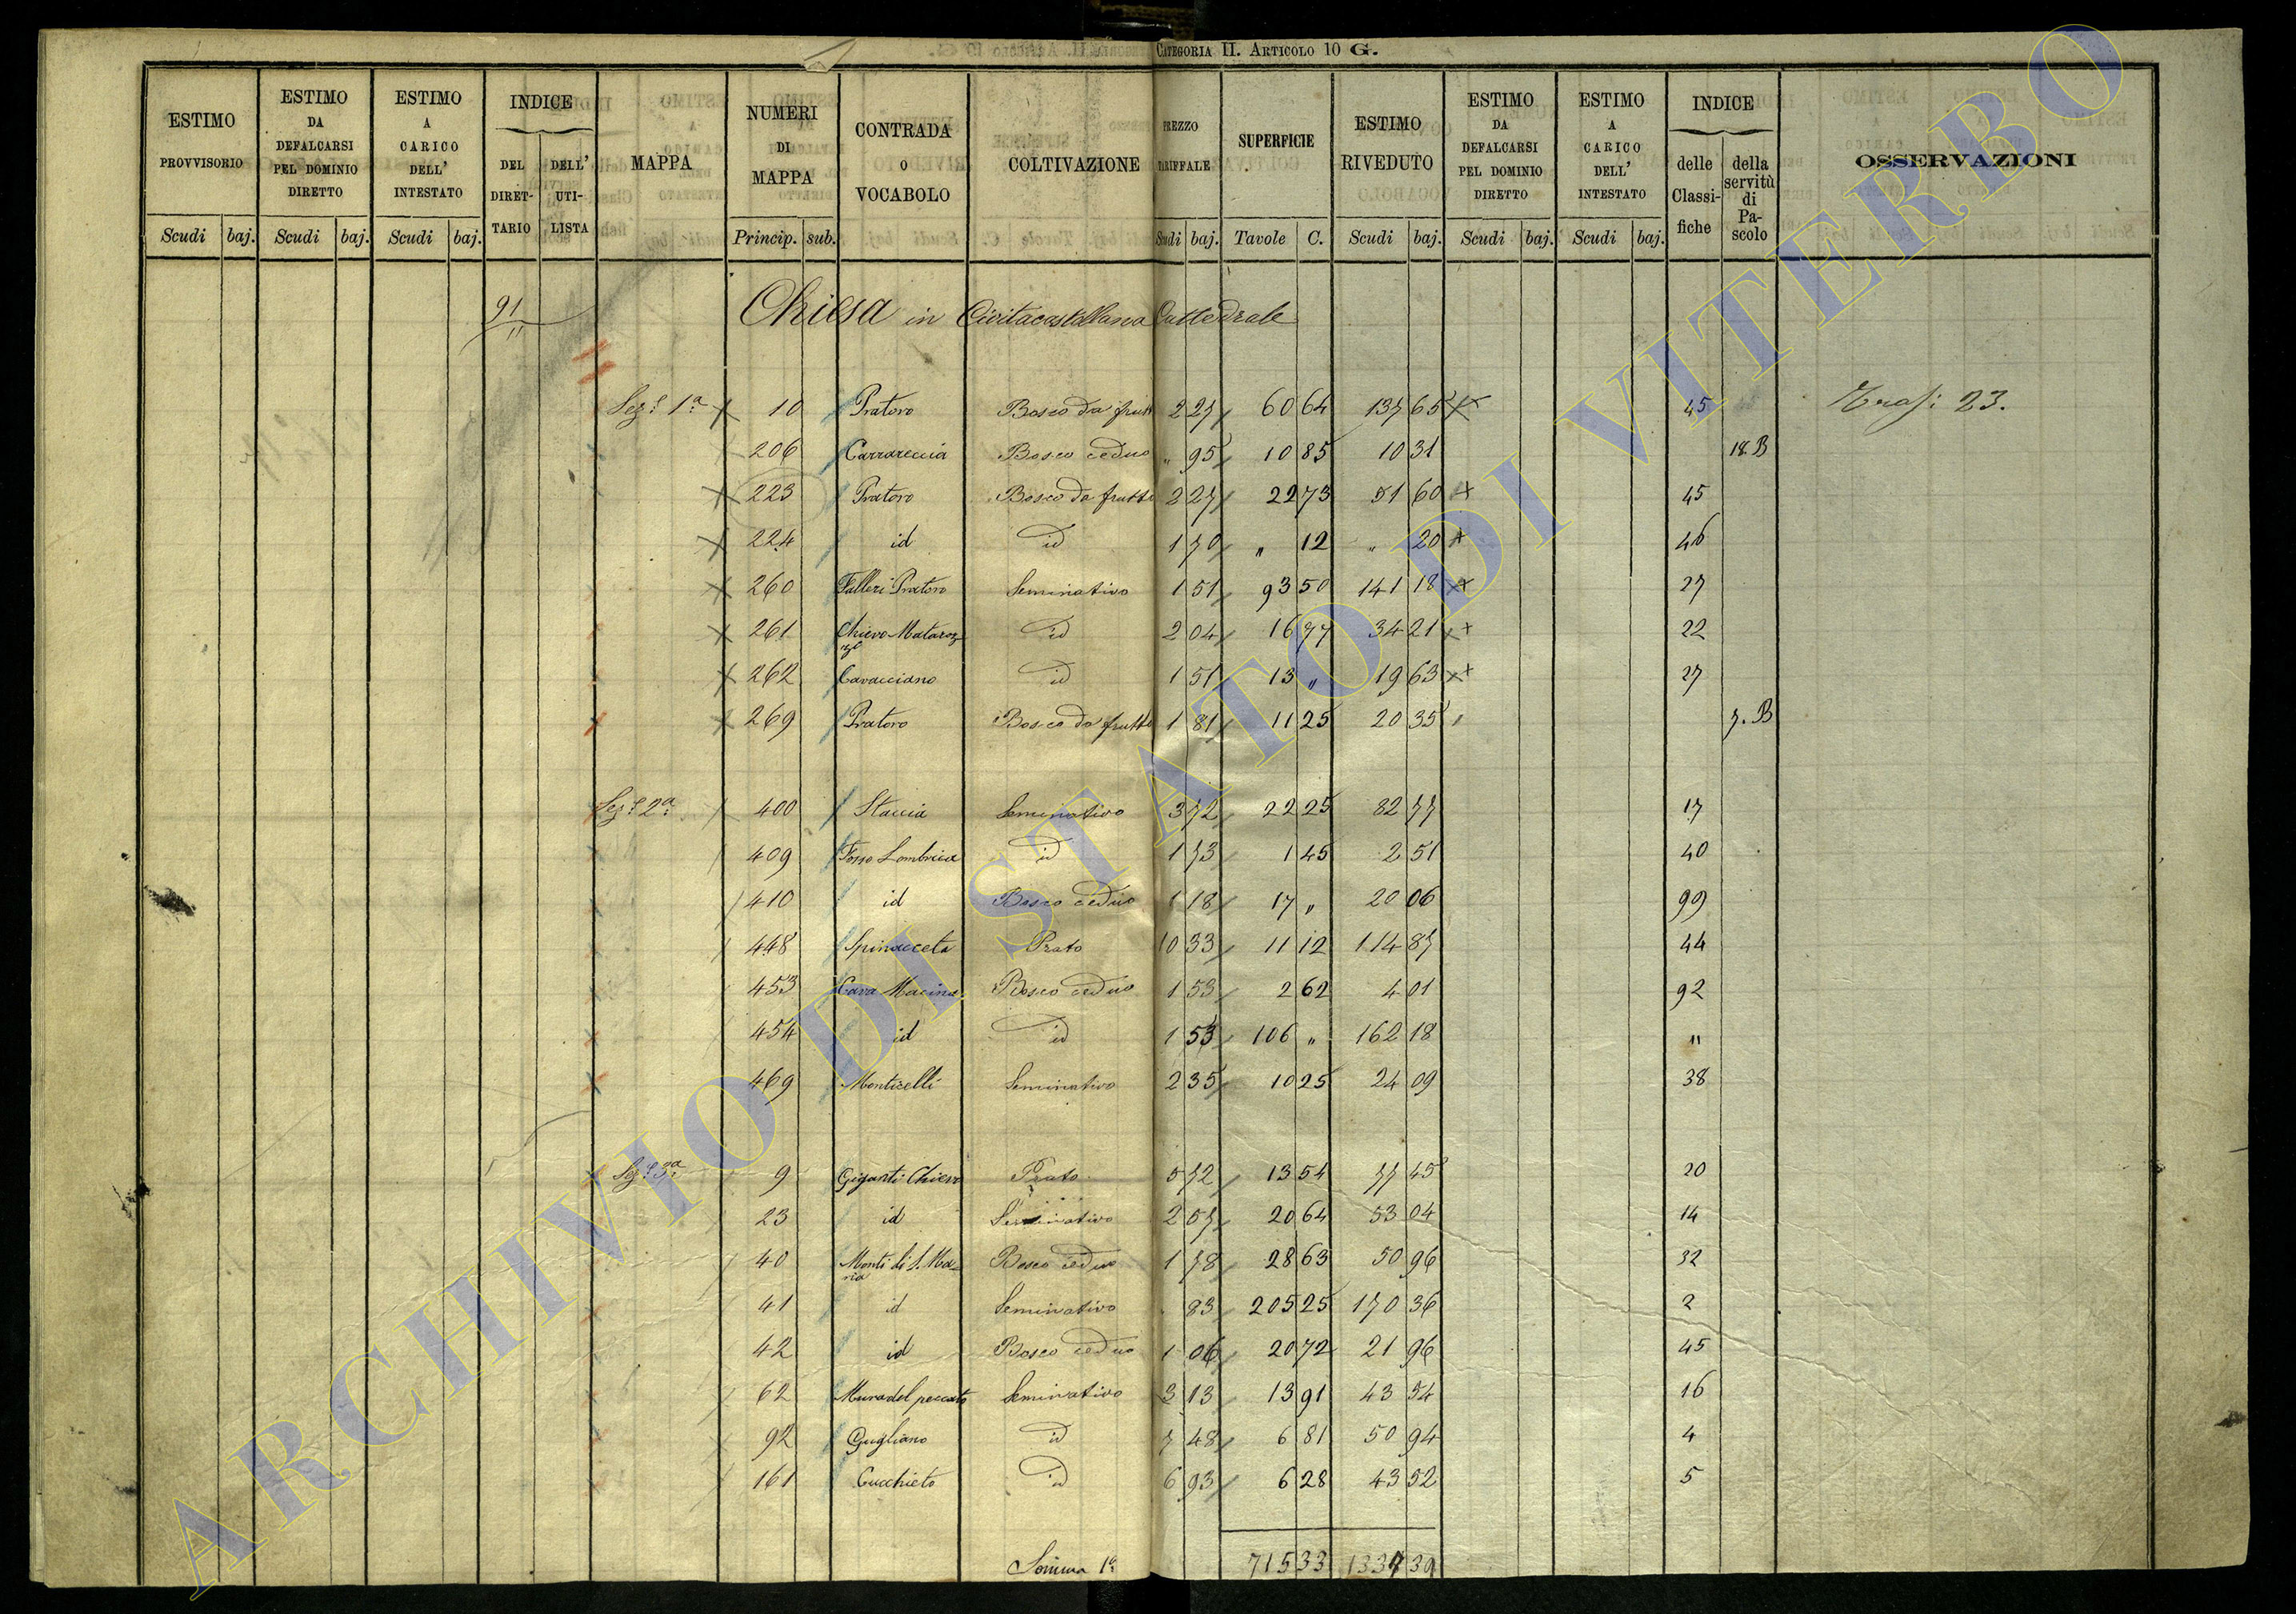 Categoria II. Articolo 10 G.
ESTIMO PROVVISORIO Scudi baj.
ESTIMO DA DEFALCARSI PEL DOMINIO DIRETTO Scudi baj.
ESTIMO A CARICO DELL' INTESTATO Scudi baj.
INDICE DEL DIRET-TARIO DELL' UTI-LISTA
MAPPA
NUMERI DI MAPPA Princip. sub.
CONTRADA O VOCABOLO
COLTIVAZIONE
PREZZO TARIFFALE Scudi baj.
SUPERFICIE Tavole C.
ESTIMO RIVEDUTO Scudi baj.
ESTIMO DA DEFALCARSI PEL DOMINIO DIRETTO Scudi baj.
ESTIMO A CARICO DELL' INTESTATO Scudi baj.
INDICE delle Classi-fiche della servitù di Pa-scolo
OSSERVAZIONI
91 Chiesa in Civitacastellana Cattedrale
Sez.e 1a 10 Pratoro Bosco da frutti 2 27 60 64 137 65 45 Trasf: 23.
206 Carrareccia Bosco ceduo " 95 10 85 10 31 18. B
223 Pratoro Bosco da frutti 2 27 22 73 51 60 45
224 id id 1 70 " 12 " 20 46
260 Falleri Pratoro Seminativo 1 51 93 50 141 18 27
261 id 2 04 16 77 34 21 22
262 Cavacciano id 1 51 13 " 19 63 27
269 Pratoro Bosco da frutti 1 81 11 25 20 35 7. B
Sez.e 2a 400 Staccia Seminativo 3 72 22 25 82 77 17
409 Fosso Lombrica id 1 73 1 45 2 51 40
410 id Bosco ceduo 1 18 17 " 20 06 99
448 Spinacceta Prato 10 33 11 12 114 87 44
453 Cava Macina Bosco ceduo 1 53 2 62 4 01 92
454 id id 1 53 106 " 162 18 "
469 Monticelli Seminativo 2 35 10 25 24 09 38
Sez.e 3a 9 Giganti Chiero Prato 5 72 13 54 77 45 20
23 id Seminativo 2 57 20 64 53 04 14
40 Monti di S. Maria Bosco ceduo 1 78 28 63 50 96 32
41 id Seminativo 83 205 25 170 36 2
42 id Bosco ceduo 1 06 20 72 21 96 45
62 Mura del peccato Seminativo 3 13 13 91 43 54 16
92 Gugliano id 7 48 6 81 50 94 4
161 Cucchieto id 6 93 6 28 43 52 5
Somma 1a 715 33 1337 39
ARCHIVIO DI STATO DI VITERBO